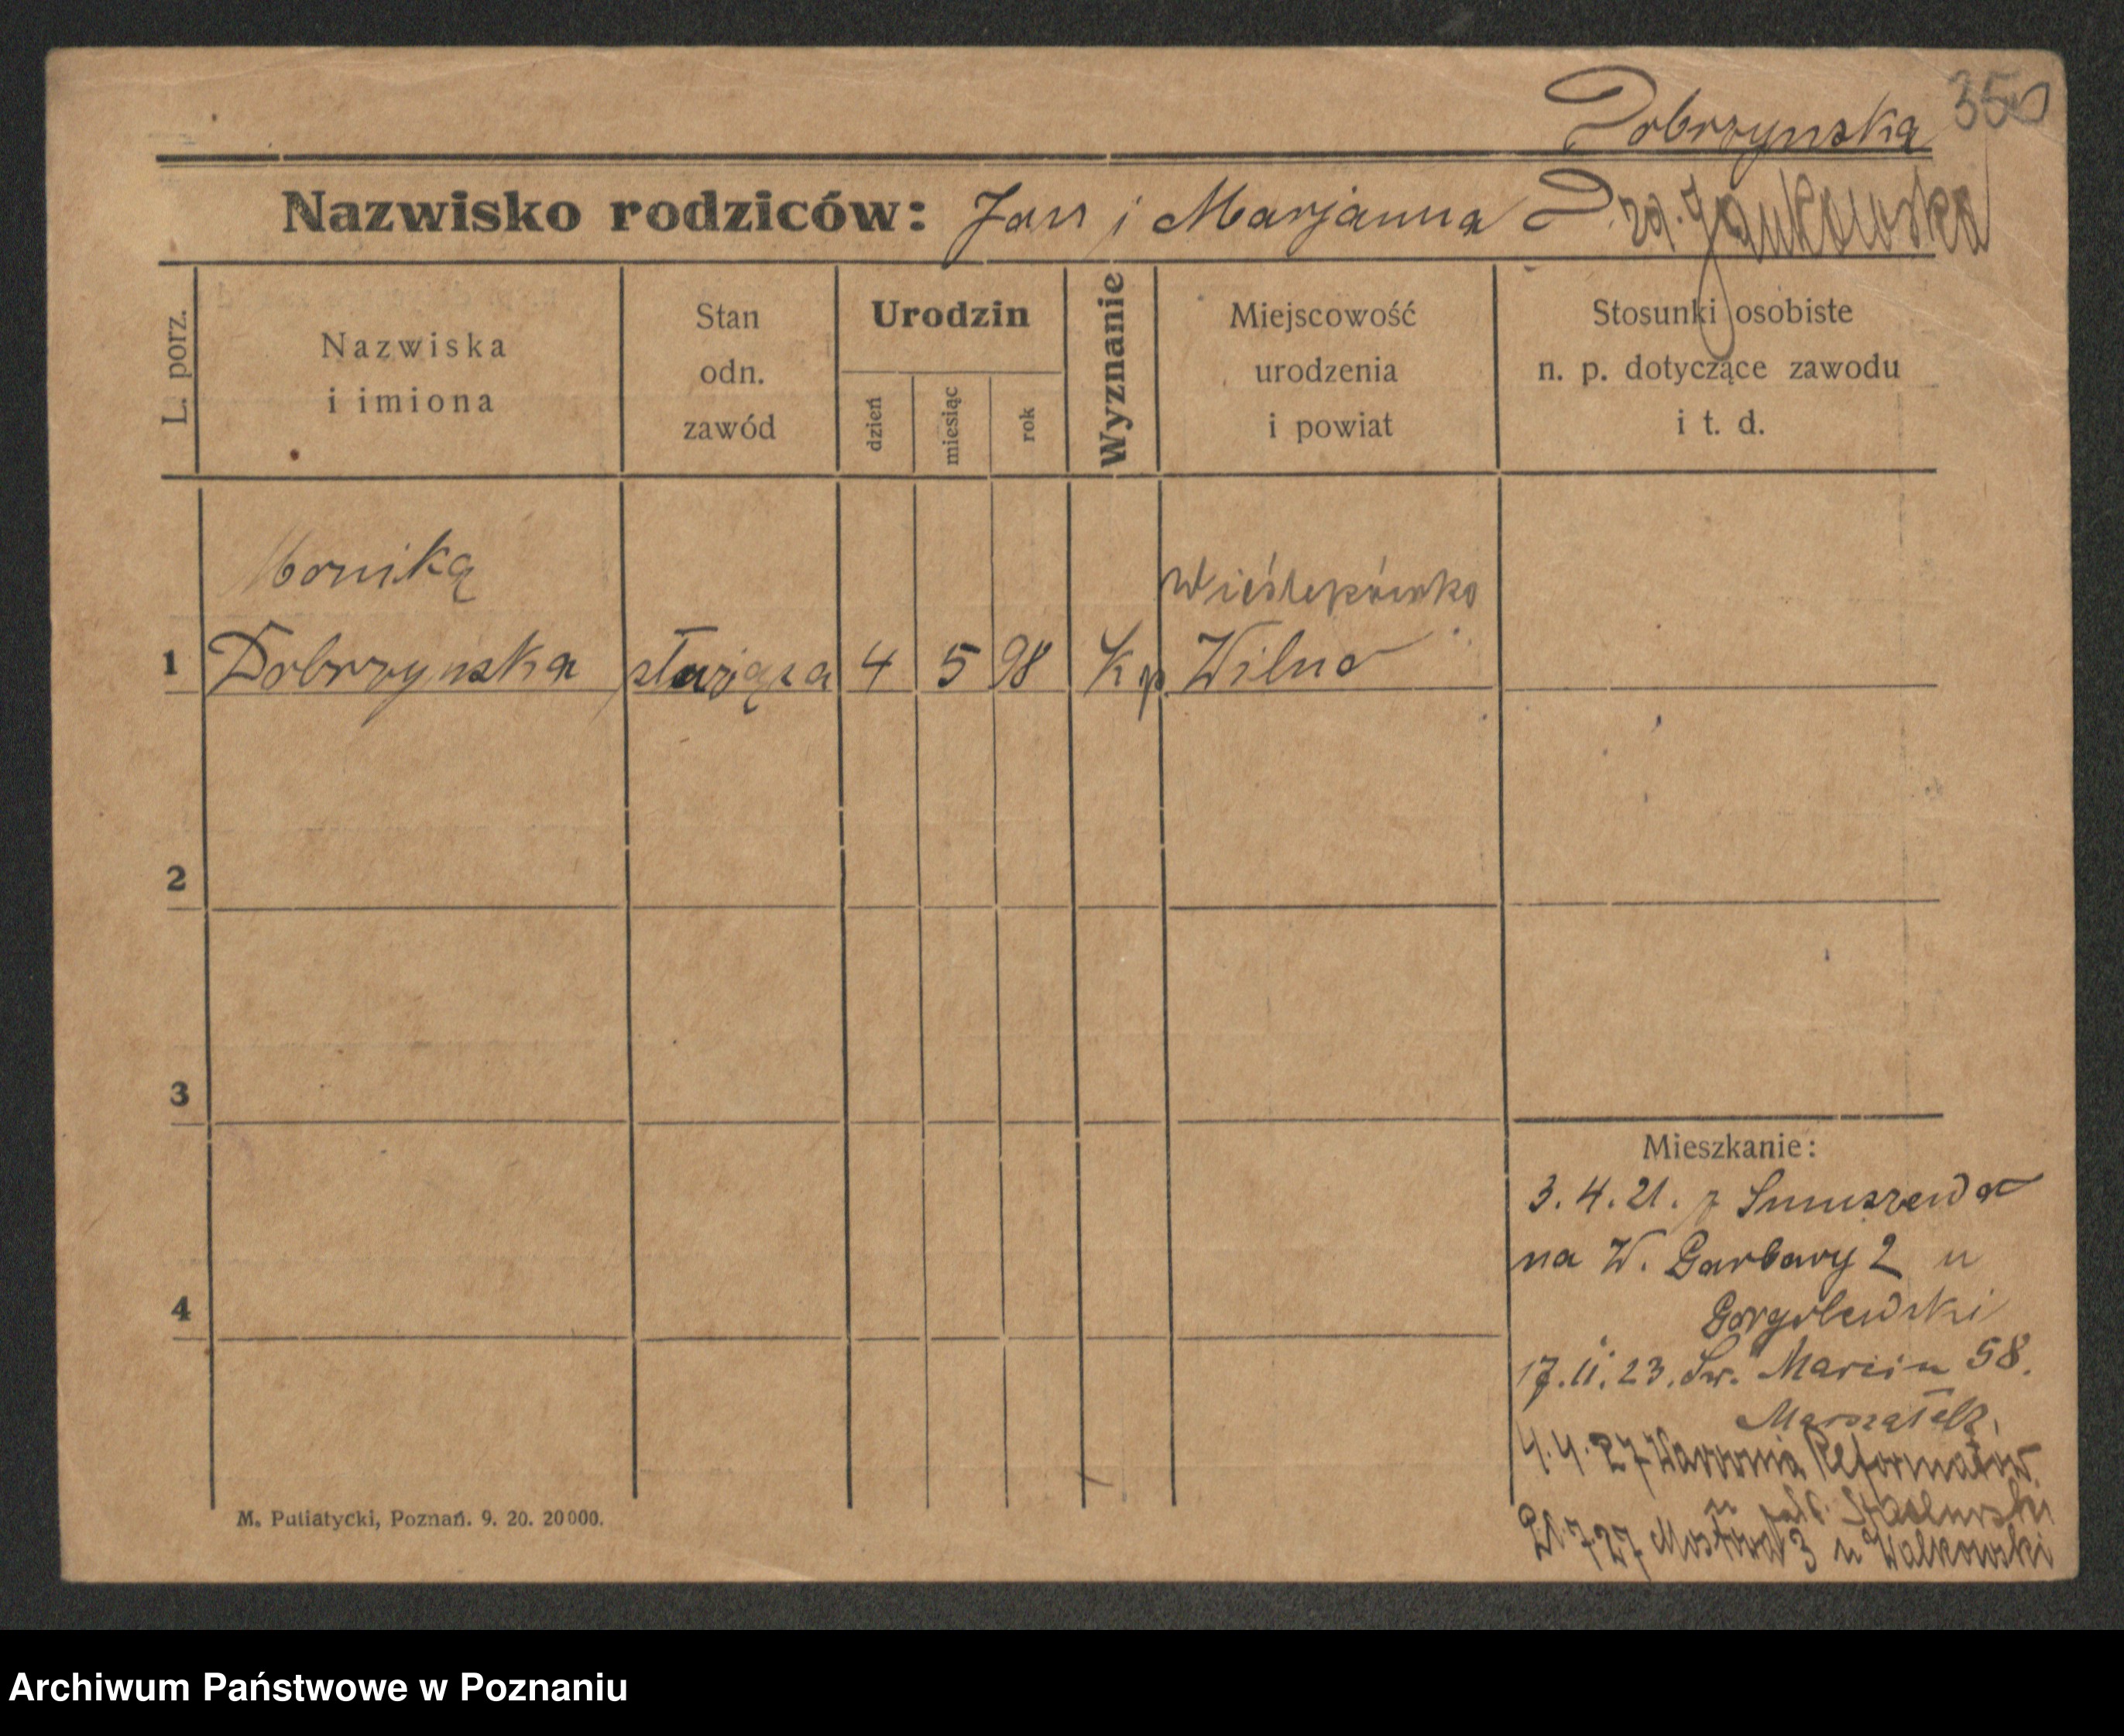 Dobrzynska 350
Nazwisko rodziców: Jan i Marjanna D. zd. Jankowska
L. porz.
Nazwiska
i imiona
Stan
odn.
zawód
Urodzin
dzień
miesiąc
rok
Wyznanie
Miejscowość
urodzenia
i powiat
Stosunki osobiste
n. p. dotyczące zawodu
i t. d.
Monika
1 Dobrzynska służąca 4 5 98 K Wilno
2
3
4
Mieszkanie:
3. 4. 21. z
na W. Garbary 2 u
Gorgolewski
17. 11. 23. Św. Marcin 58.
Marszałek
4. 4. 27 Reformatów
u
21 7 27 Mostowa 3 u Walkowski
M. Putiatycki, Poznań. 9. 20. 20000.
Archiwum Państwowe w Poznaniu